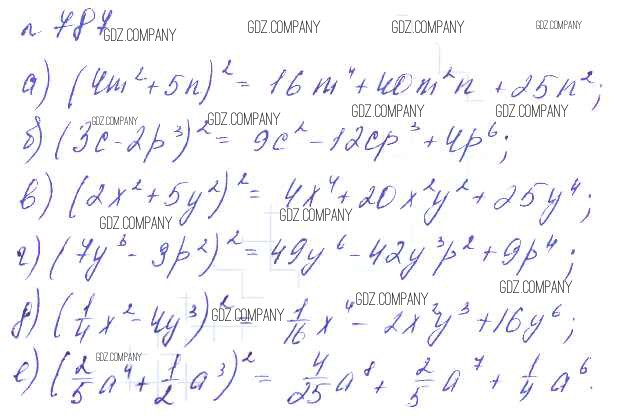 n 787
GDZ.COMPANY GDZ.COMPANY GDZ.COMPANY GDZ.COMPANY
а) (4m² + 5n)² = 16m⁴ + 40m²n + 25n²;
GDZ.COMPANY GDZ.COMPANY GDZ.COMPANY GDZ.COMPANY
б) (3c - 2p³)² = 9c² - 12cp³ + 4p⁶;
в) (2x² + 5y²)² = 4x⁴ + 20x²y² + 25y⁴;
GDZ.COMPANY GDZ.COMPANY
г) (7y³ - 3p²)² = 49y⁶ - 42y³p² + 9p⁴;
GDZ.COMPANY GDZ.COMPANY GDZ.COMPANY
д) (1/4 x² - 4y³)² = 1/16 x⁴ - 2x²y³ + 16y⁶;
GDZ.COMPANY GDZ.COMPANY
е) (2/5 a⁴ + 1/2 a³)² = 4/25 a⁸ + 2/5 a⁷ + 1/4 a⁶.